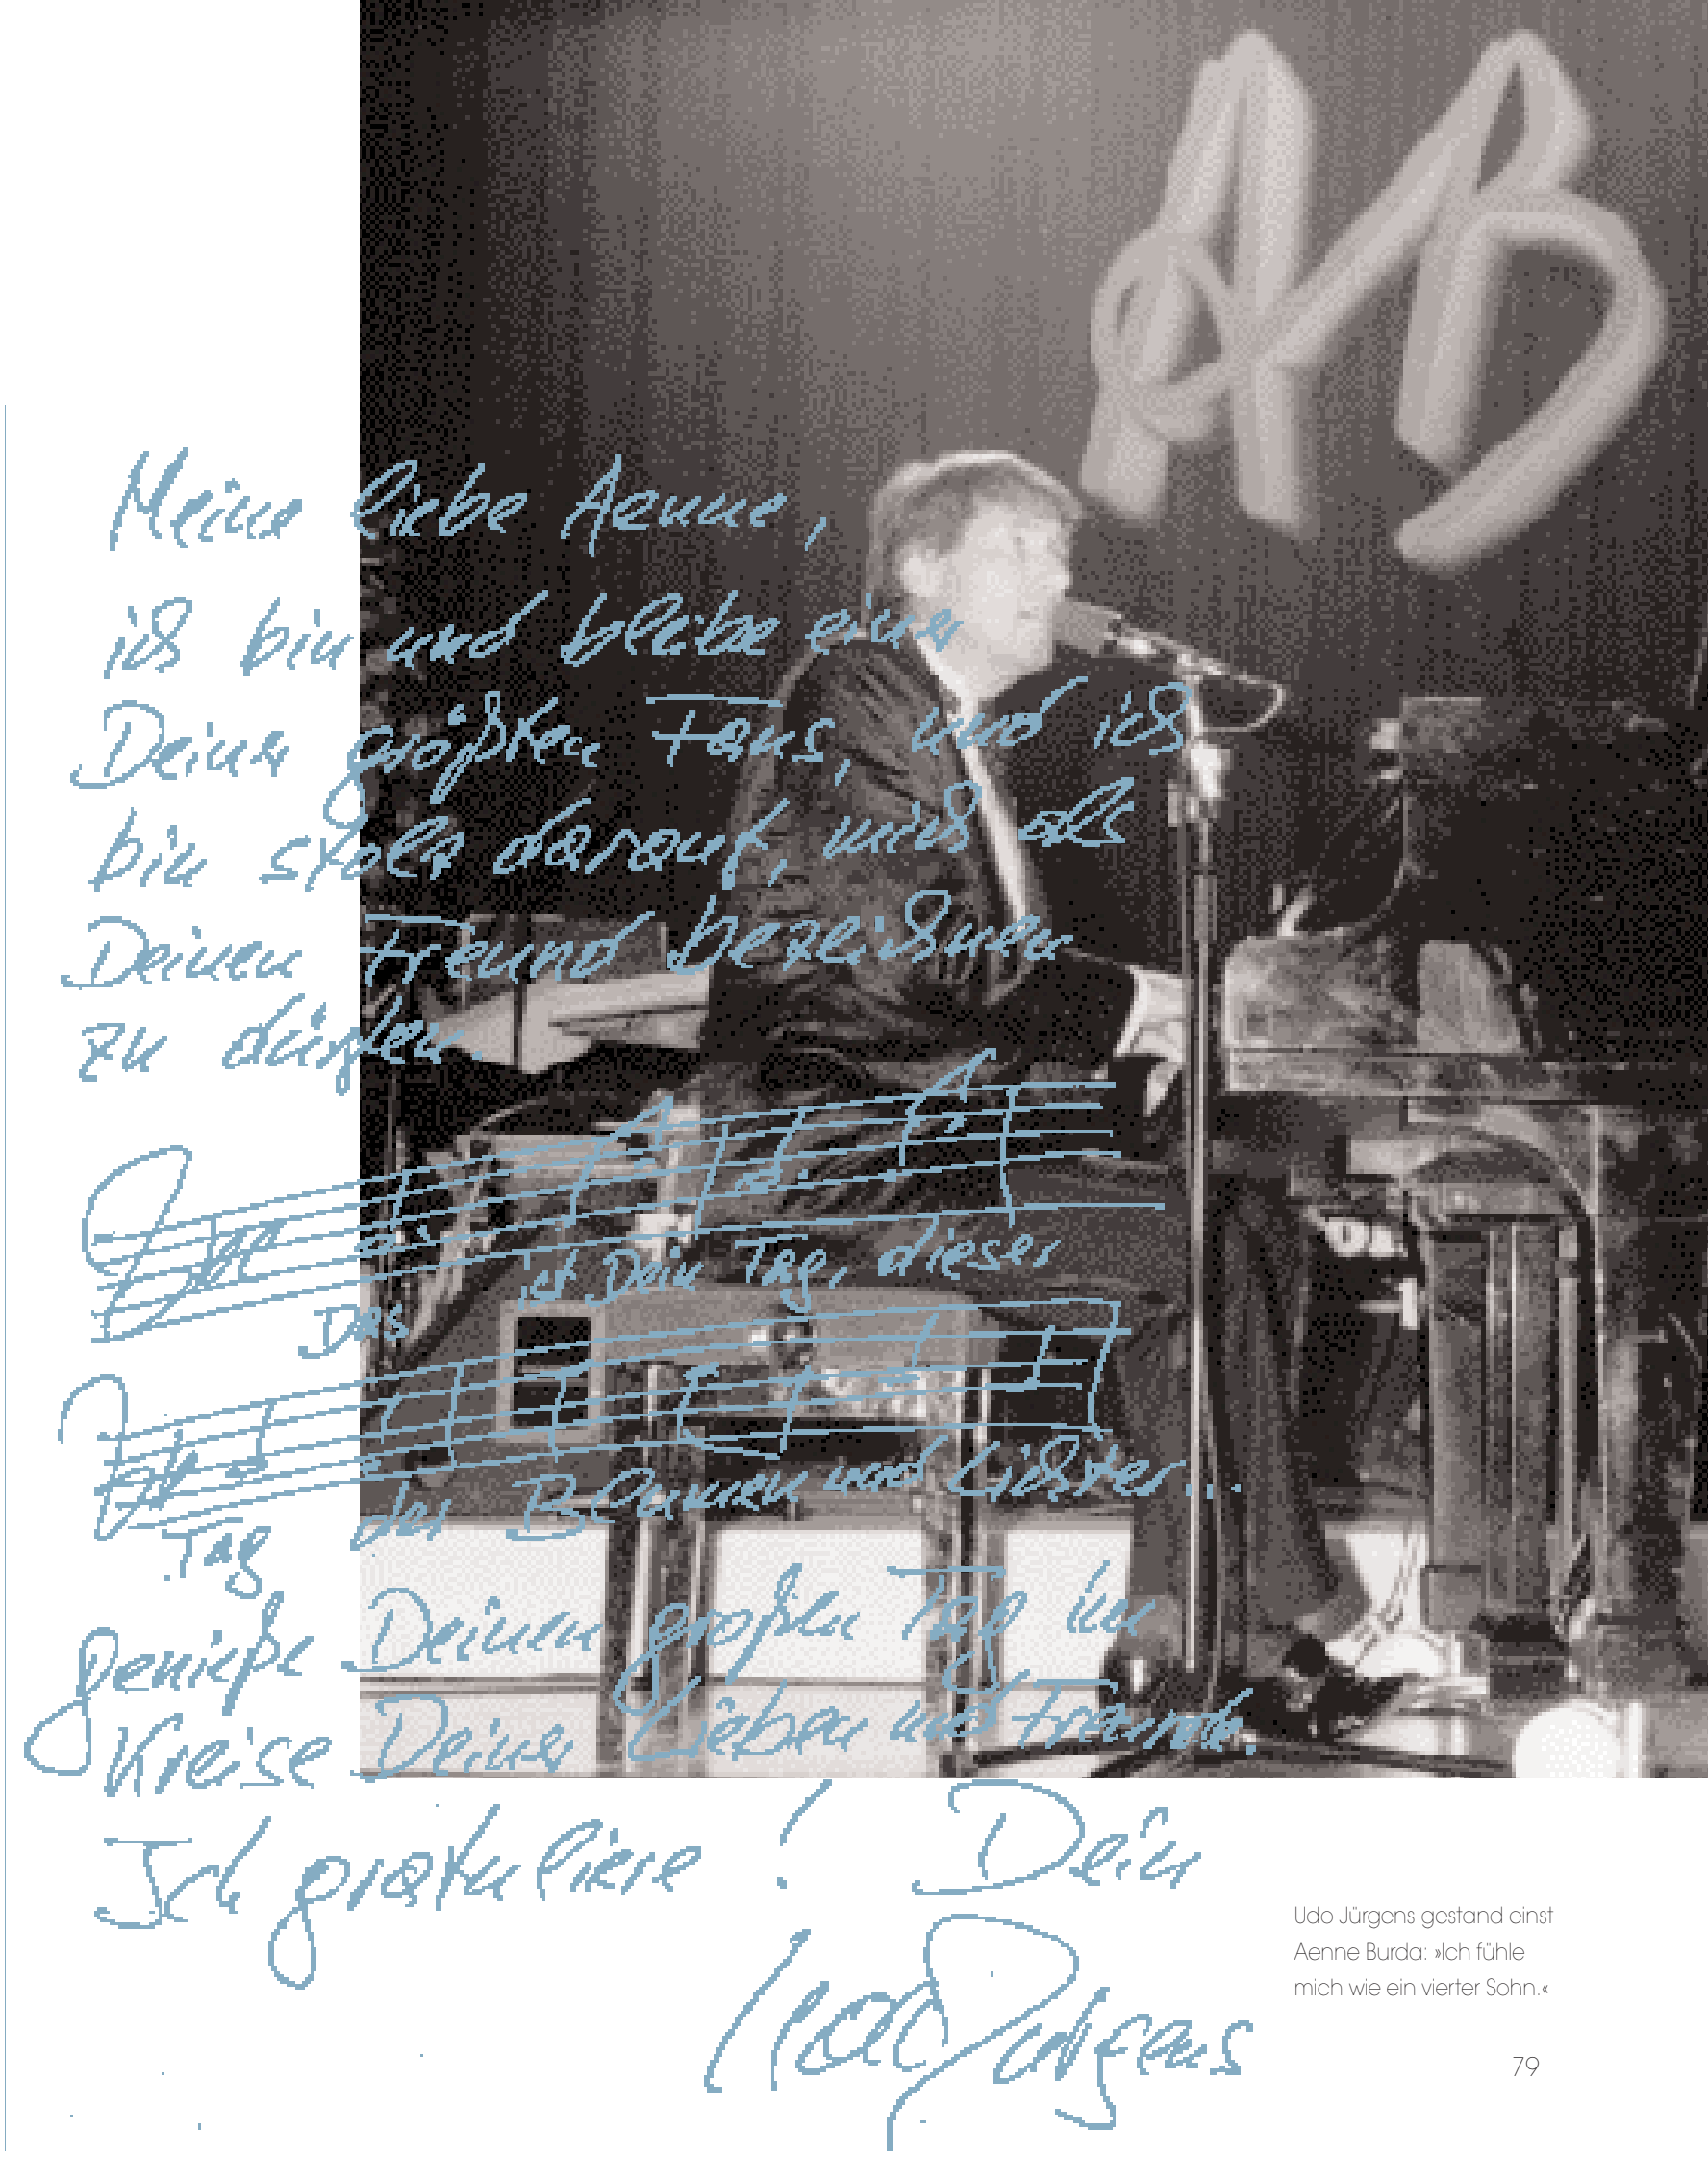 AB
Meine liebe Aenne,
ich bin und bleibe einer
Deiner größten Fans, und ich
bin stolz darauf, mich als
Deinen Freund bezeichnen
zu dürfen.
Das ist Dein Tag, dieser
Tag der Blumen und Lichter...
genieße Deinen großen Tag im
Kreise Deiner Lieben und Freunde.
Ich gratuliere! Dein
Udo Jürgens
Udo Jürgens gestand einst
Aenne Burda: »Ich fühle
mich wie ein vierter Sohn.«
79